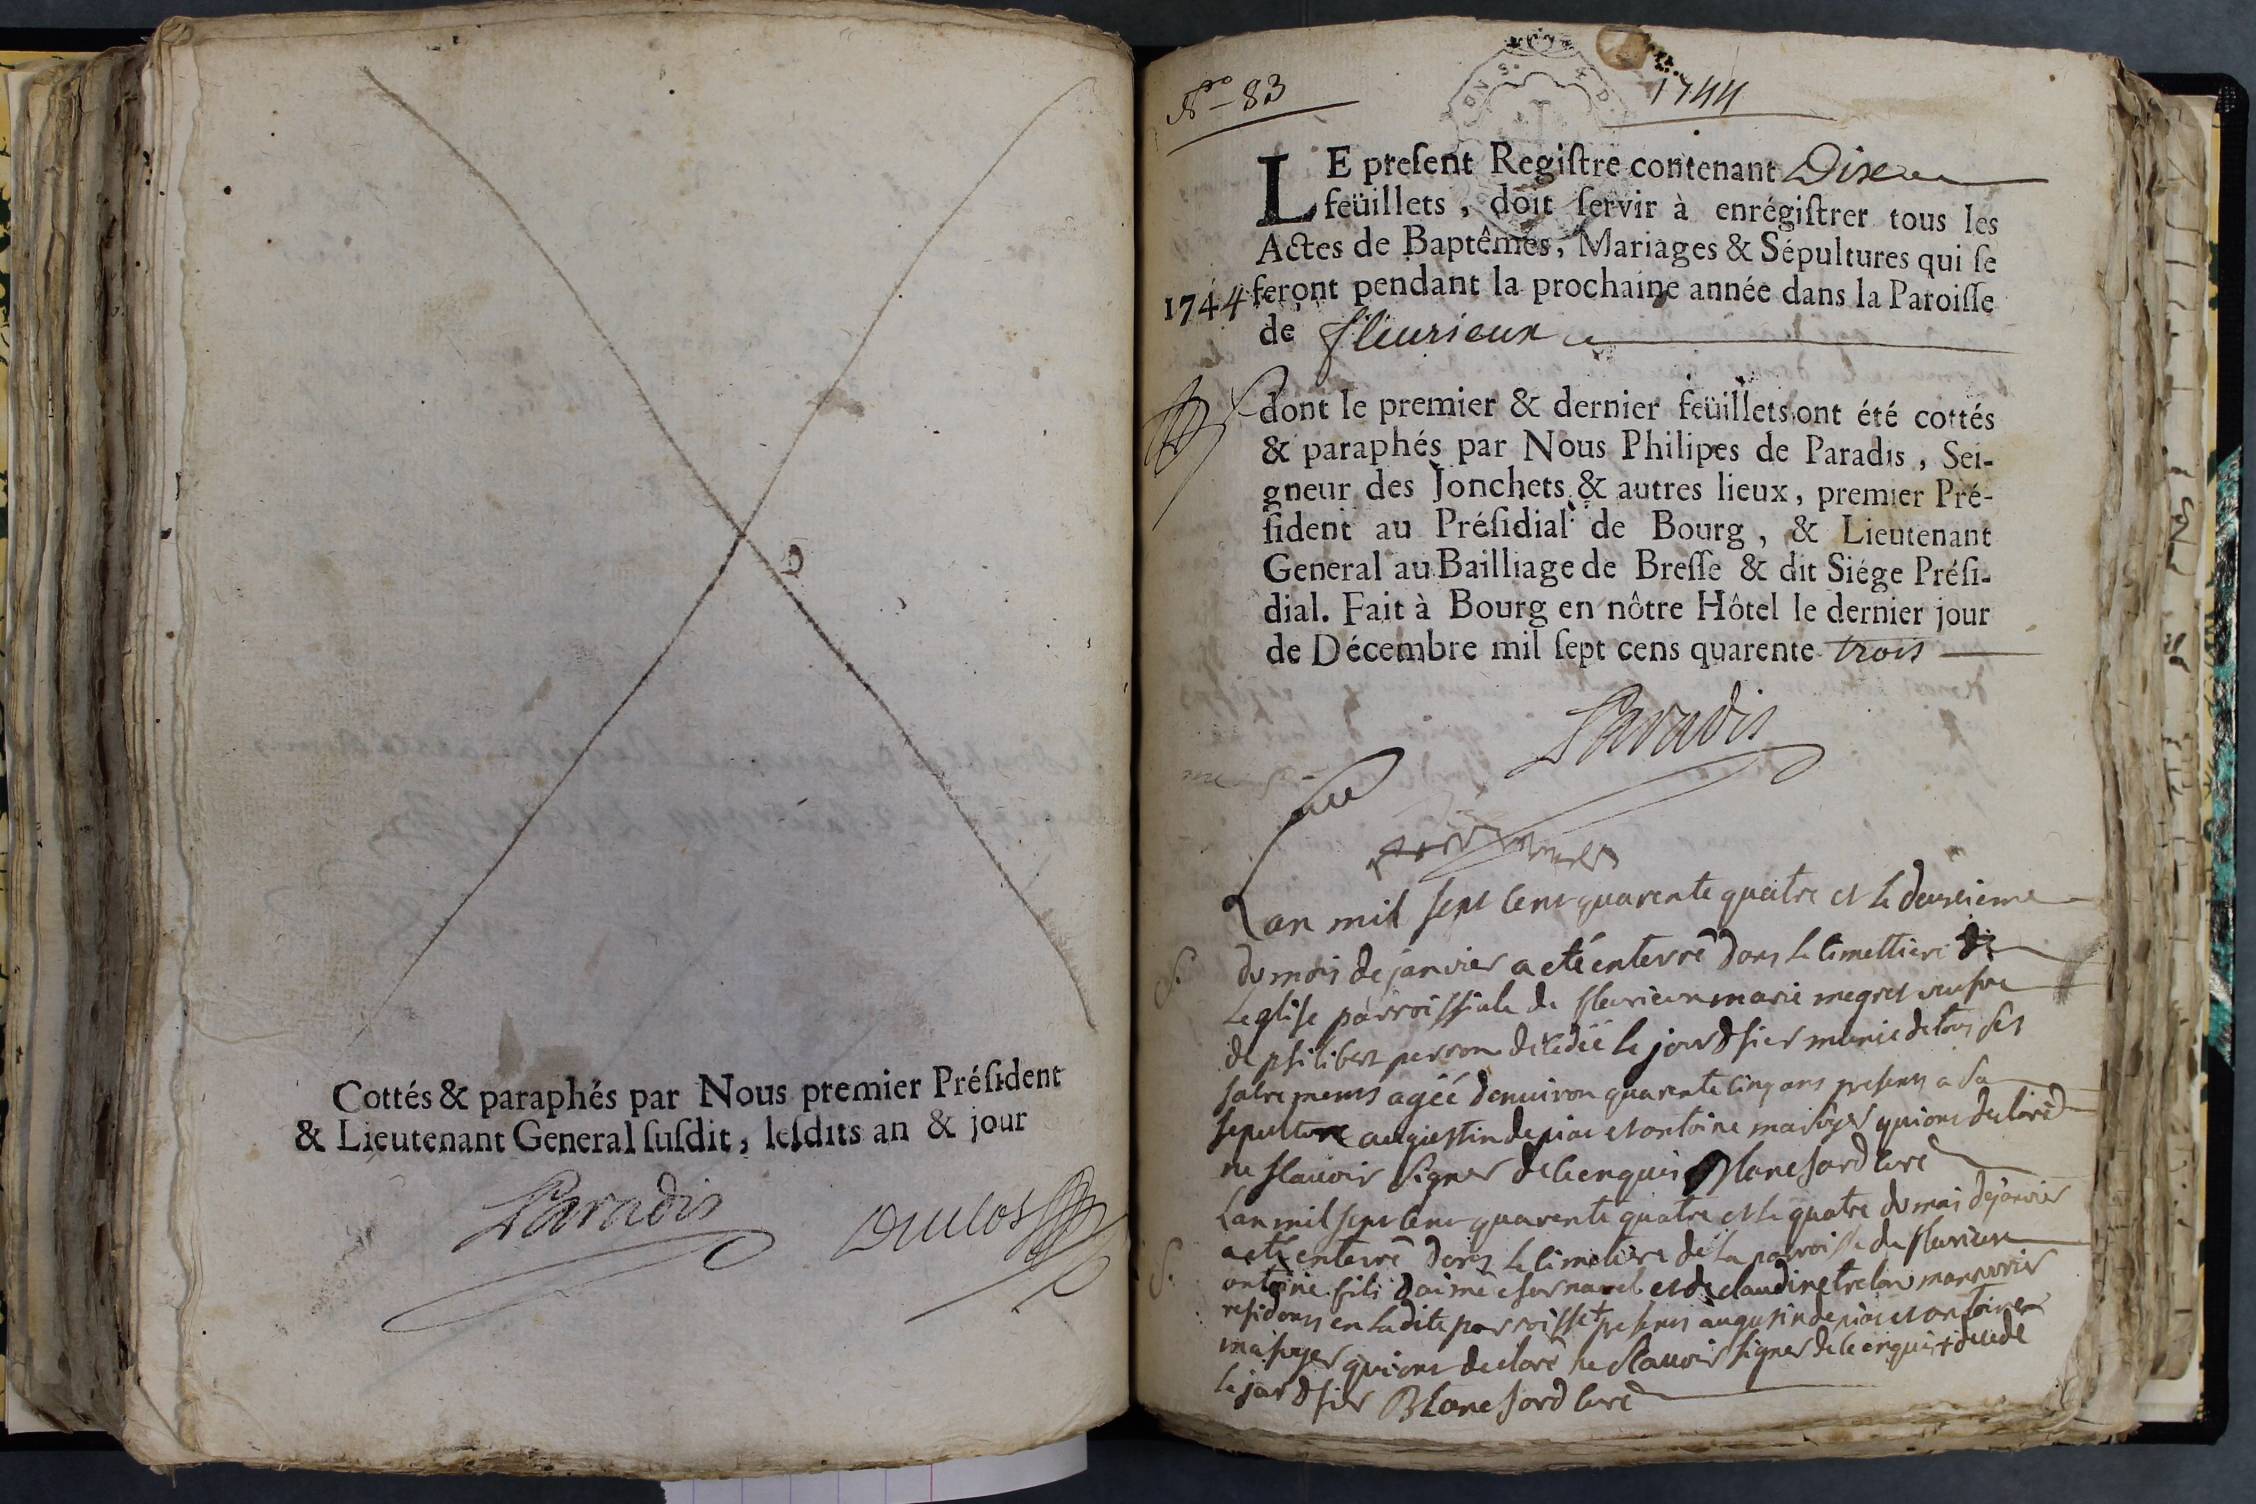 Cottés & paraphés par Nous premier Préſident
& Lieutenant General ſuſdit, leſdits an & jour
Paradis Duclos
N.ro - 83
1744
LE preſent Regiſtre contenant Dix
feüillets, doit ſervir à enrégiſtrer tous les
Actes de Baptêmes, Mariages & Sépultures qui ſe
1744 feront pendant la prochaine année dans la Paroiſſe
de fleurieux
dont le premier & dernier feüillets ont été cottés
& paraphés par Nous Philipes de Paradis, Sei-
gneur des Jonchets & autres lieux, premier Pré-
ſident au Préſidial de Bourg, & Lieutenant
General au Bailliage de Breſſe & dit Siége Préſi-
dial. Fait à Bourg en nôtre Hôtel le dernier jour
de Décembre mil ſept cens quarente trois
Paradis
Lan mil sept cent quarente quatre et le deuxieme
S. du mois de janvier a eté enterré dans le cimettiere de
Leglise parroissiale de fleurieux marie megret veufve
de philibert perron decedée le jour d hier munie de tous ses
sacrements agéé denuiron quarente cinq ans presents a sa
sepulture augustin depias et antoine masuyer qui ont declaré
ne scauoir signer de ce enquis Blanchard curé
Lan mil sept cent quarente quatre et le quatre du mois de janvier
S. a eté enterré dans le cimetiere de la parroisse de fleurieux
antoine fils daimé et de claudine
residents en ladite parroisse + presents augustin depias et antoine
masuyer qui ont declaré ne scauoir signer de ce enquis + decedé
le jour d hier Blanchard curé